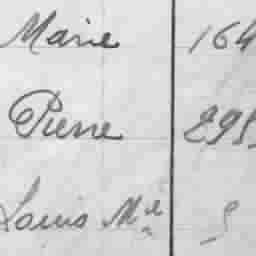 Marie 164
Pierre 295
Louis Mel 9